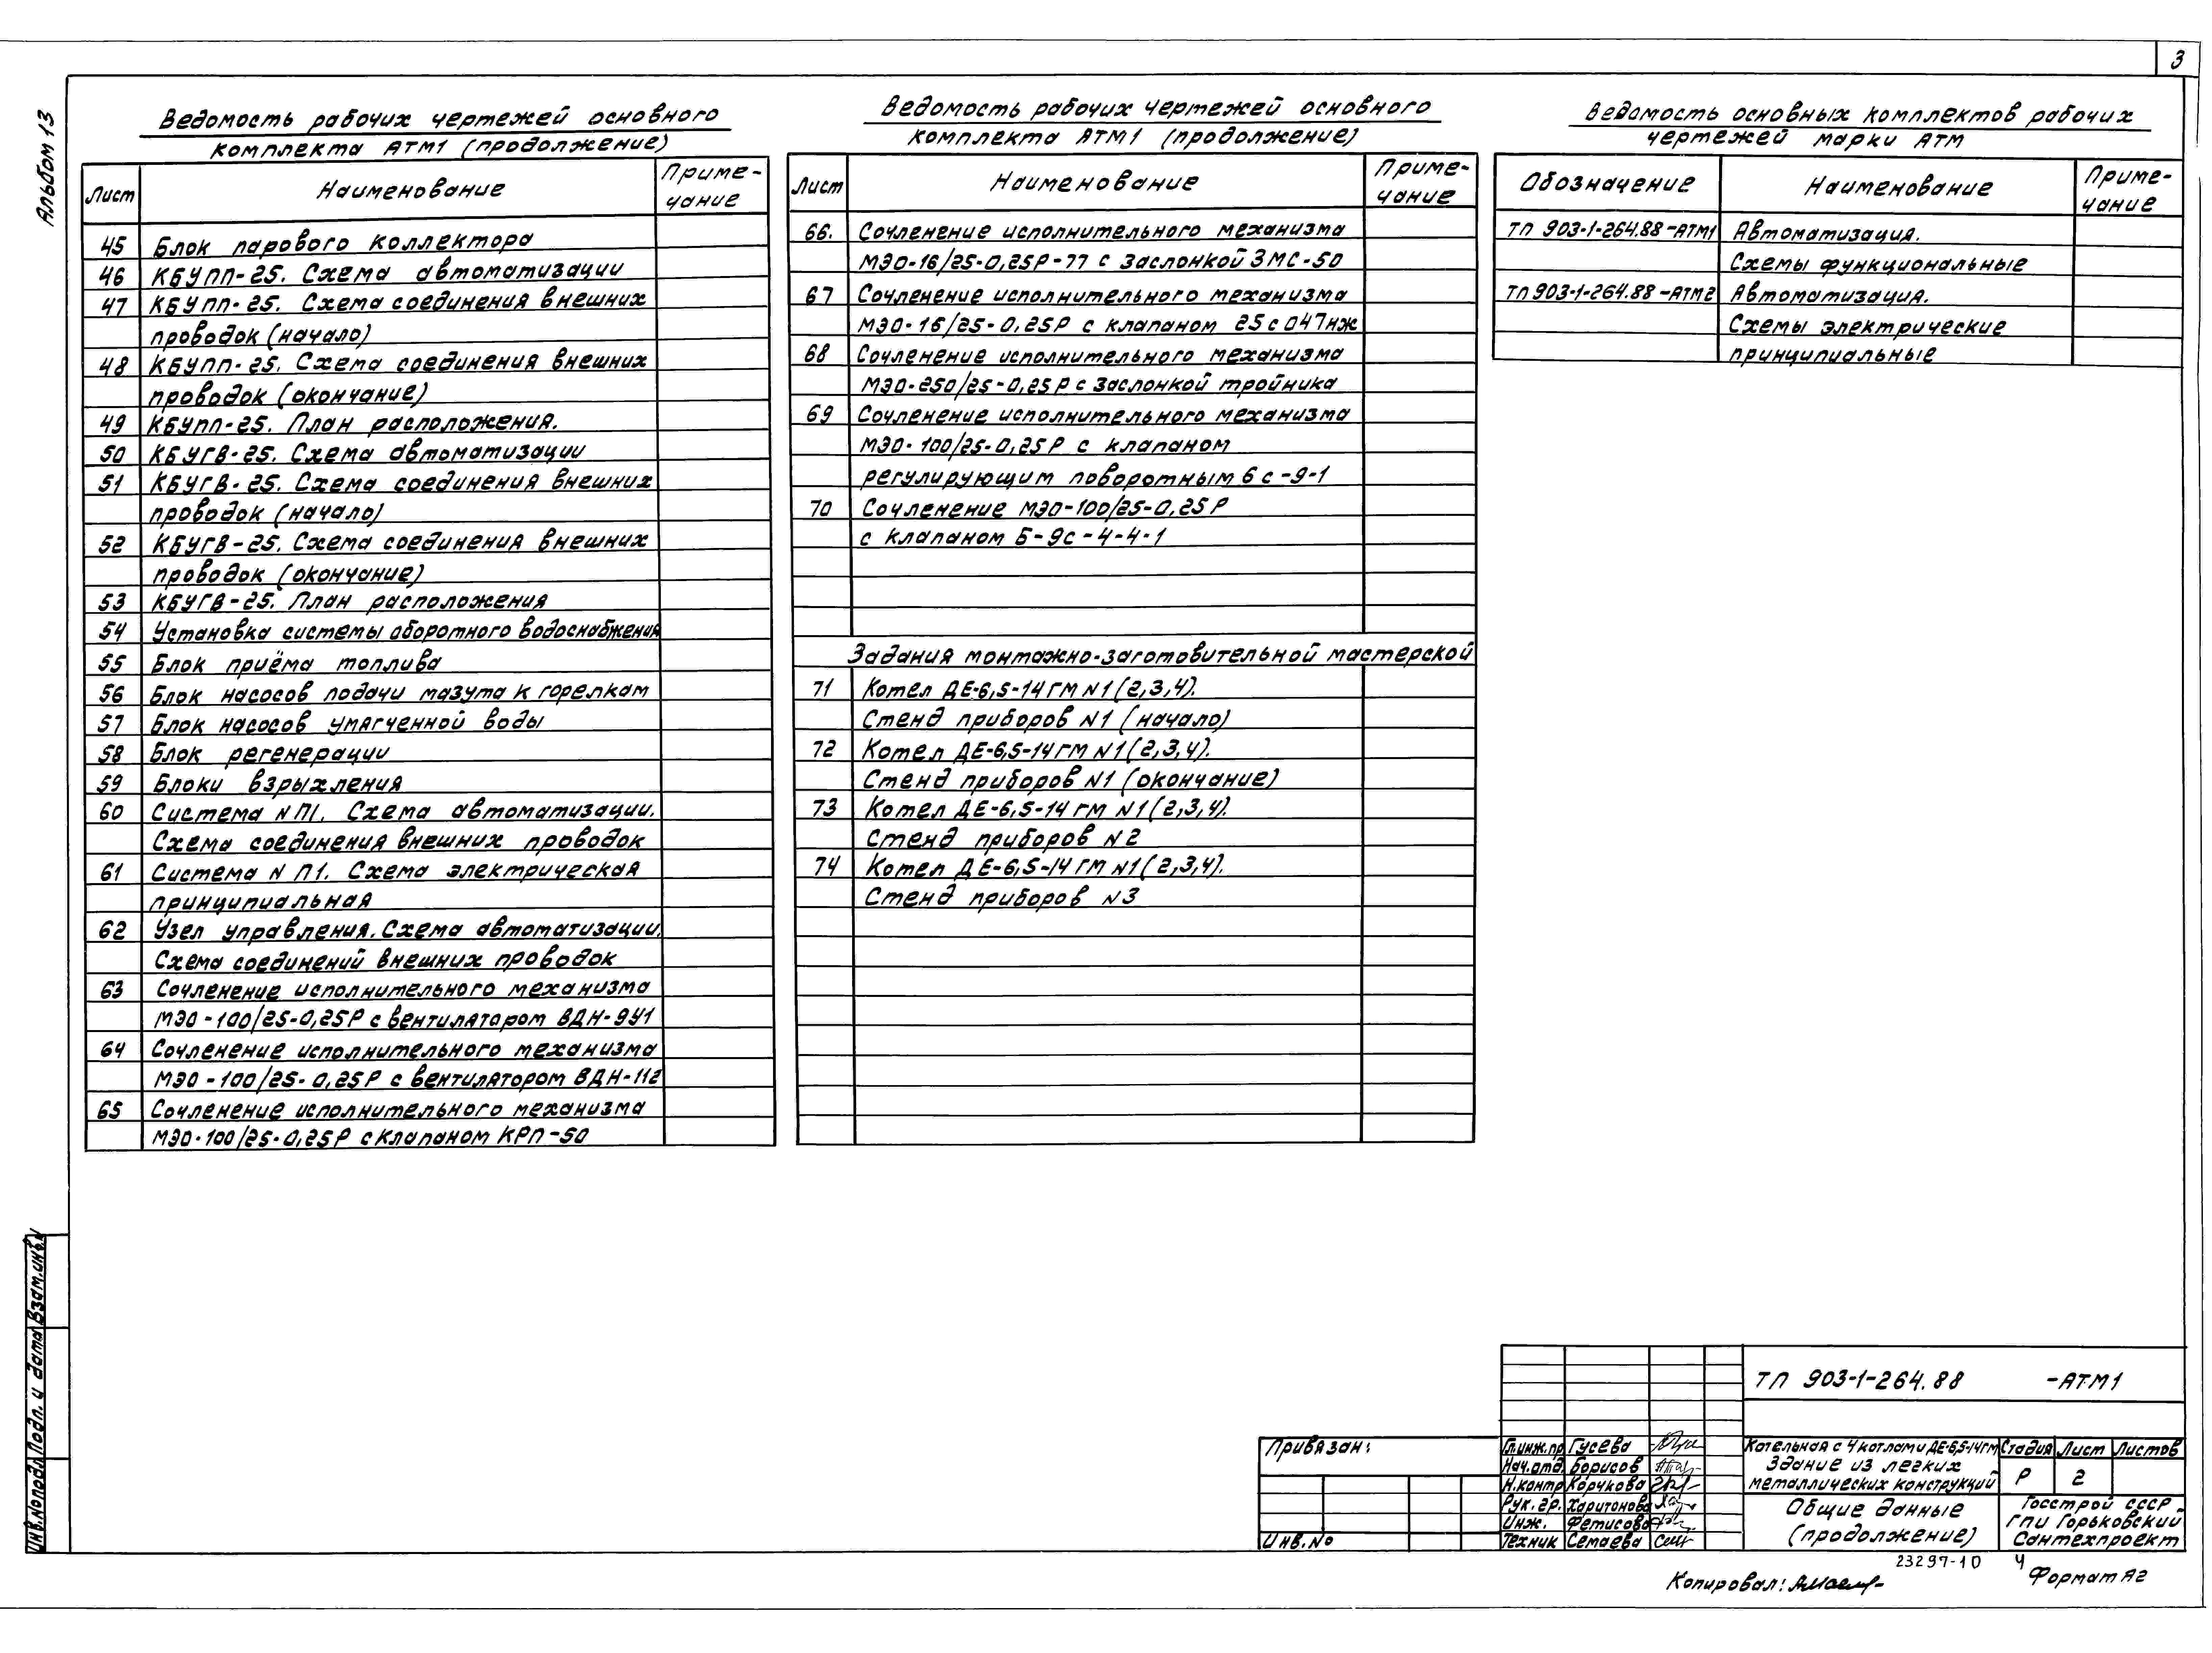 3
Альбом 13
Ведомость рабочих чертежей основного
комплекта АТМ1 (продолжение)
Лист Наименование Приме-
чание
45 Блок парового коллектора
46 КБУПП-25. Схема автоматизации
47 КБУПП-25. Схема соединения внешних
проводок (начало)
48 КБУПП-25. Схема соединения внешних
проводок (окончание)
49 КБУПП-25. План расположения.
50 КБУГВ-25. Схема автоматизации
51 КБУГВ-25. Схема соединения внешних
проводок (начало)
52 КБУГВ-25. Схема соединения внешних
проводок (окончание)
53 КБУГВ-25. План расположения
54 Установка системы оборотного водоснабжения
55 Блок приёма топлива
56 Блок насосов подачи мазута к горелкам
57 Блок насосов умягченной воды
58 Блок регенерации
59 Блоки взрыхления
60 Система N П1. Схема автоматизации.
Схема соединения внешних проводок
61 Система N П1. Схема электрическая
принципиальная
62 Узел управления. Схема автоматизации.
Схема соединений внешних проводок
63 Сочленение исполнительного механизма
МЭО-100/25-0,25Р с вентилятором ВДН-9У1
64 Сочленение исполнительного механизма
МЭО-100/25-0,25Р с вентилятором ВДН-112
65 Сочленение исполнительного механизма
МЭО-100/25-0,25Р с клапаном КРП-50
Ведомость рабочих чертежей основного
комплекта АТМ1 (продолжение)
Лист Наименование Приме-
чание
66. Сочленение исполнительного механизма
МЭО-16/25-0,25Р-77 с заслонкой ЗМС-50
67 Сочленение исполнительного механизма
МЭО-16/25-0,25Р с клапаном 25с047нж
68 Сочленение исполнительного механизма
МЭО-250/25-0,25Р с заслонкой тройника
69 Сочленение исполнительного механизма
МЭО-100/25-0,25Р с клапаном
регулирующим поворотным 6с-9-1
70 Сочленение МЭО-100/25-0,25Р
с клапаном Б-9с-4-4-1
Задания монтажно-заготовительной мастерской
71 Котел ДЕ-6,5-14ГМ N1(2,3,4).
Стенд приборов N1 (начало)
72 Котел ДЕ-6,5-14ГМ N1(2,3,4).
Стенд приборов N1 (окончание)
73 Котел ДЕ-6,5-14ГМ N1(2,3,4).
Стенд приборов N2
74 Котел ДЕ-6,5-14ГМ N1(2,3,4).
Стенд приборов N3
Ведомость основных комплектов рабочих
чертежей марки АТМ
Обозначение Наименование Приме-
чание
ТП 903-1-264.88-АТМ1 Автоматизация.
Схемы функциональные
ТП 903-1-264.88-АТМ2 Автоматизация.
Схемы электрические
принципиальные
Инв.Nподл. Подп. и дата Взам.инв.N
Привязан:
Инв.No
Гл.инж.пр Гусева
Нач.отд. Борисов
Н.контр Корчкова
Рук.гр. Харитонова
Инж. Фетисова
Техник Семаева
ТП 903-1-264.88 -АТМ1
Котельная с 4 котлами ДЕ-6,5-14ГМ
Здание из легких
металлических конструкций
Стадия Лист Листов
Р 2
Общие данные
(продолжение)
Госстрой СССР
ГПИ Горьковский
Сантехпроект
23297-10 4
Копировал: Формат А2